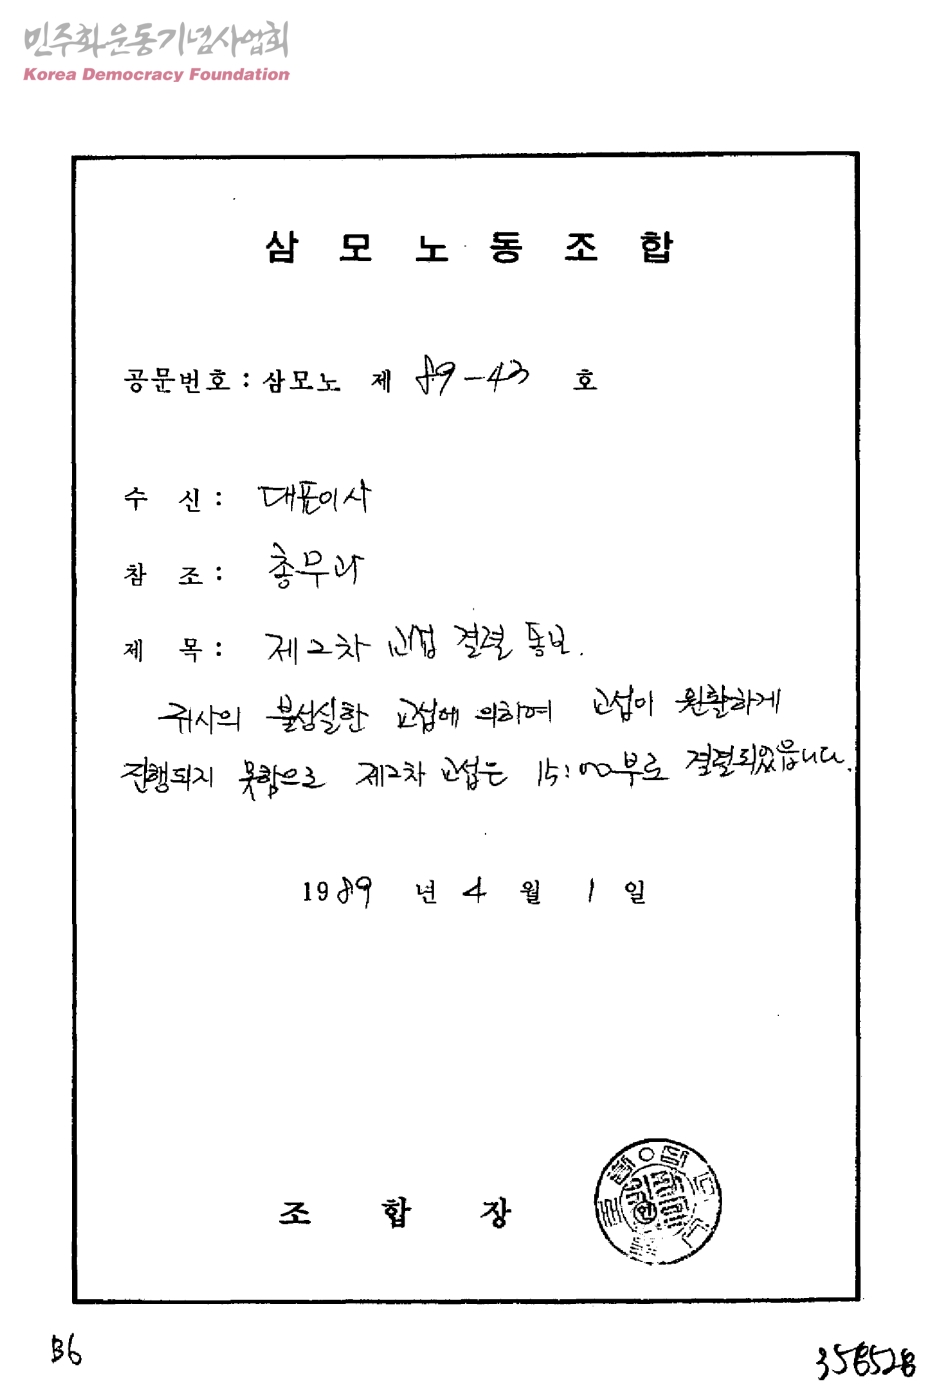 민주화운동기념사업회
Korea Democracy Foundation
삼 모 노 동 조 합
공문번호 : 삼모노 제 89-43 호
수 신 : 대표이사
참 조 : 총무과
제 목 : 제2차 교섭 결렬 통보.
귀사의 불성실한 교섭에 의하여 교섭이 원활하게
진행되지 못함으로 제2차 교섭은 15:00부로 결렬되었읍니다.
1989 년 4 월 1 일
조 합 장
B6
358528